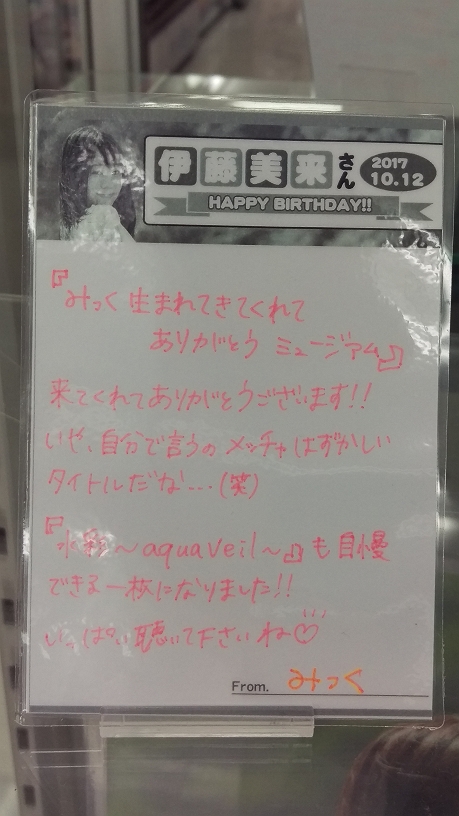 伊藤美来さん
2017
10.12
HAPPY BIRTHDAY!!
『みっく 生まれてきてくれて
ありがとう ミュージアム』
来てくれてありがとうございます!!
いや、自分で言うのメッチャはずかしい
タイトルだな…(笑)
『水彩〜aquaveil〜』も自慢
できる一枚になりました!!
いっぱい聴いて下さいね♡
From. みっく